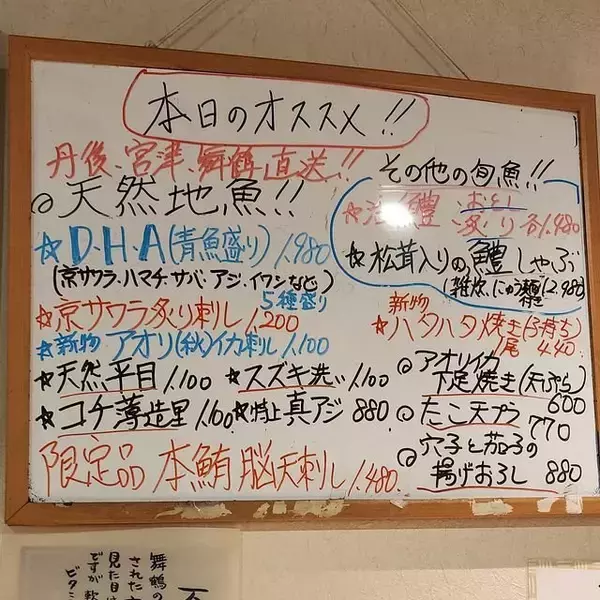 本日のオススメ!!
丹後、宮津、舞鶴直送!!
◎天然地魚!!
☆D・H・A(青魚盛り) 1,980
(京サワラ・ハマチ・サバ・アジ・イワシなど)
5種盛り
☆京サワラ炙り刺し 1,200
☆新物 アオリ(秋)イカ刺し 1,100
☆天然平目 1,100 ☆スズキ洗い 1,100
☆コチ薄造里 1,100 ☆特上真アジ 880
限定品 本鮪脳天刺し 1,480
その他の旬魚!!
鱧 おとし
炙り 各1,480
☆松茸入りの鱧しゃぶ
(雑炊、にゅう麺付き) 2,980
新物
☆ハタハタ焼き(子持ち)
1尾 440
◎アオリイカ
下足焼き(天ぷら)
600
◎たこ天プラ
770
◎穴子と茄子の
揚げおろし 880
舞鶴の
された
見た目は
ですが軟
ビタミ